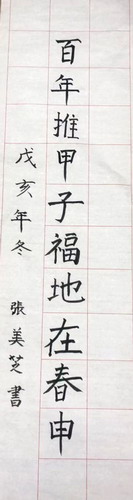 百年推甲子福地在春申
戊亥年冬 張美芝書